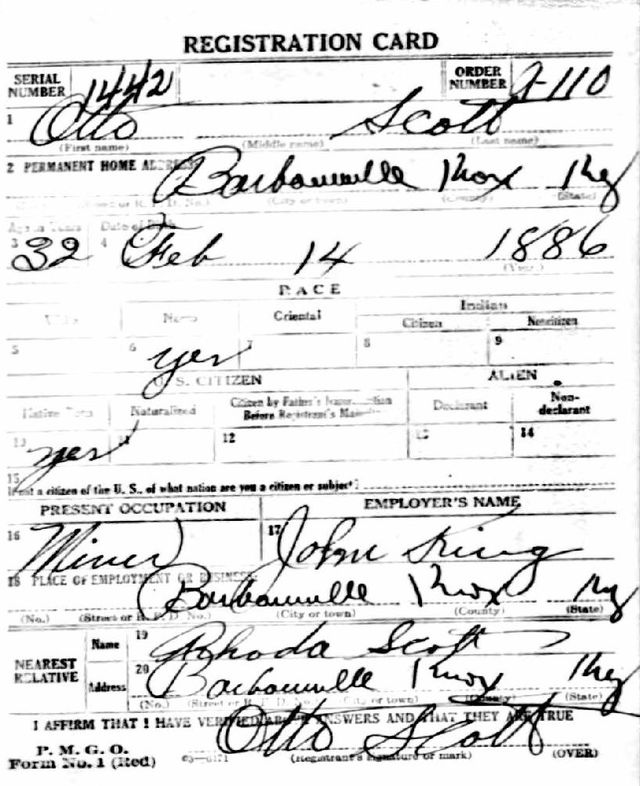 REGISTRATION CARD
SERIAL NUMBER 1442 ORDER NUMBER A-110
1 Otto Scott
(First name) (Middle name) (Last name)
2 PERMANENT HOME ADDRESS
Barbourville Knox Ky
(City or town) (County) (State)
Age in Years Date of Birth
3 32 4 Feb 14 1886
(Year)
RACE
White Negro Oriental Indian
Citizen Noncitizen
5 6 yes 7 8 9
U. S. CITIZEN ALIEN
Native Born Naturalized Citizen by Father's Naturalization Before Registrant's Majority Declarant Non-declarant
10 yes 11 12 13 14
15
If not a citizen of the U. S., of what nation are you a citizen or subject?
PRESENT OCCUPATION EMPLOYER'S NAME
16 Miner 17 John King
18 PLACE OF EMPLOYMENT OR BUSINESS:
Barbourville Knox Ky
(No.) (Street or R. F. D. No.) (City or town) (County) (State)
NEAREST RELATIVE
Name 19 Rhoda Scott
Address 20 Barbourville Knox Ky
(No.) (Street or R. F. D. No.) (City or town) (County) (State)
I AFFIRM THAT I HAVE VERIFIED ABOVE ANSWERS AND THAT THEY ARE TRUE
P. M. G. O.
Form No. 1 (Red) Otto Scott
(Registrant's signature or mark) (OVER)